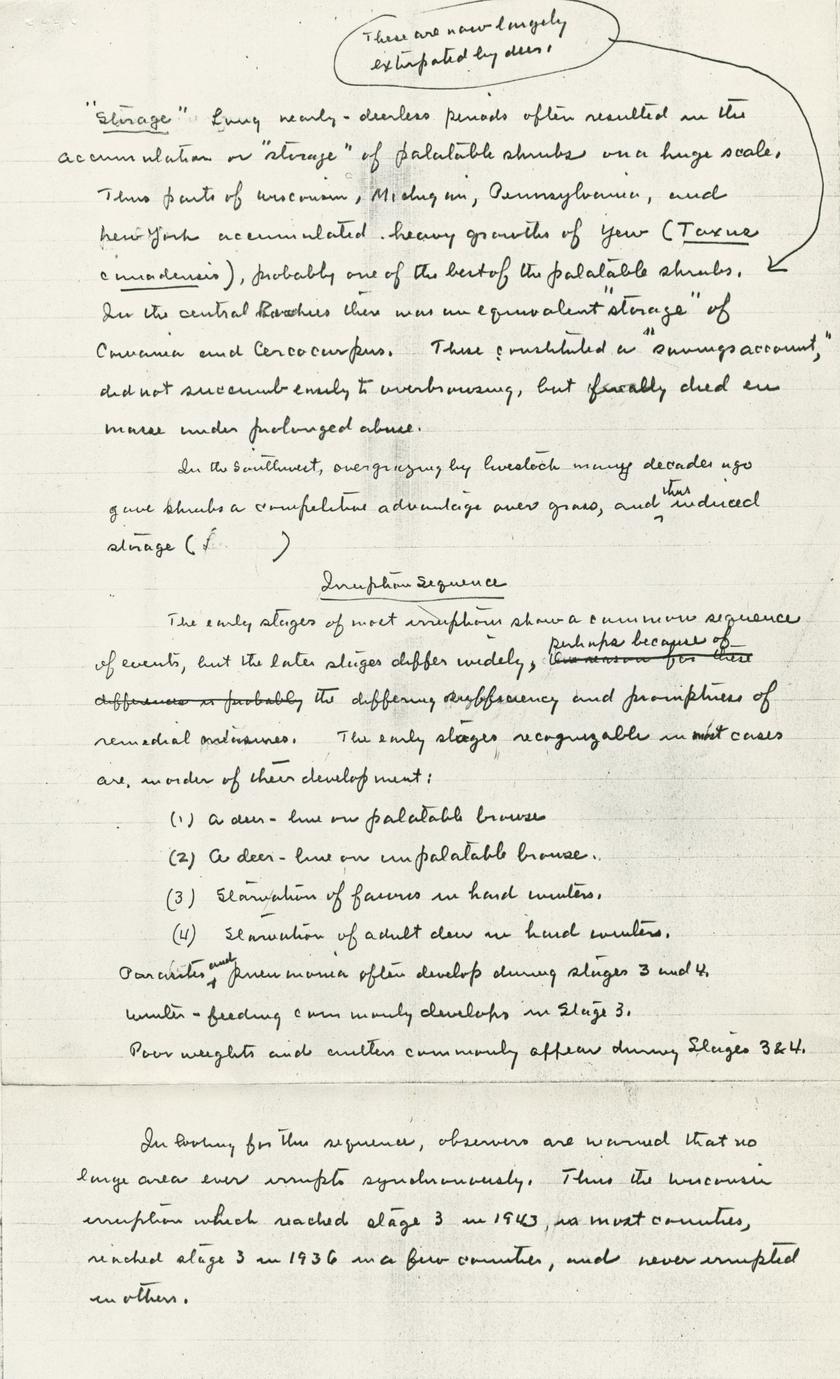 These are now largely
extirpated by deer.
"Storage" Long nearly-deerless periods often resulted in the
accumulation or "storage" of palatable shrubs on a huge scale.
Thus parts of Wisconsin, Michigan, Pennsylvania, and
New York accumulated heavy growths of yew (Taxus
canadensis), probably one of the best of the palatable shrubs.
In the central Rockies there was an equivalent "storage" of
Cowania and Cercocarpus. These constituted a "savings account,"
did not succumb easily to overbrowsing, but finally died en
masse under prolonged abuse.
In the Southwest, overgrazing by livestock many decades ago
gave shrubs a competitive advantage over grass, and thus induced
storage ( )
Irruption Sequence
The early stages of most irruptions show a common sequence
of events, but the later stages differ widely, perhaps because of
the reason for these
differences is probably the differing sufficiency and promptness of
remedial measures. The early stages recognizable in most cases
are, in order of their development:
(1) A deer-line on palatable browse
(2) A deer-line on unpalatable browse.
(3) Starvation of fawns in hard winters.
(4) Starvation of adult deer in hard winters.
Parasites and pneumonia often develop during stages 3 and 4.
Winter-feeding commonly develops in Stage 3.
Poor weights and antlers commonly appear during Stages 3 & 4.
In looking for this sequence, observers are warned that no
large area ever irrupts synchronously. Thus the Wisconsin
irruption which reached stage 3 in 1943, in most counties,
reached stage 3 in 1936 in a few counties, and never irrupted
in others.